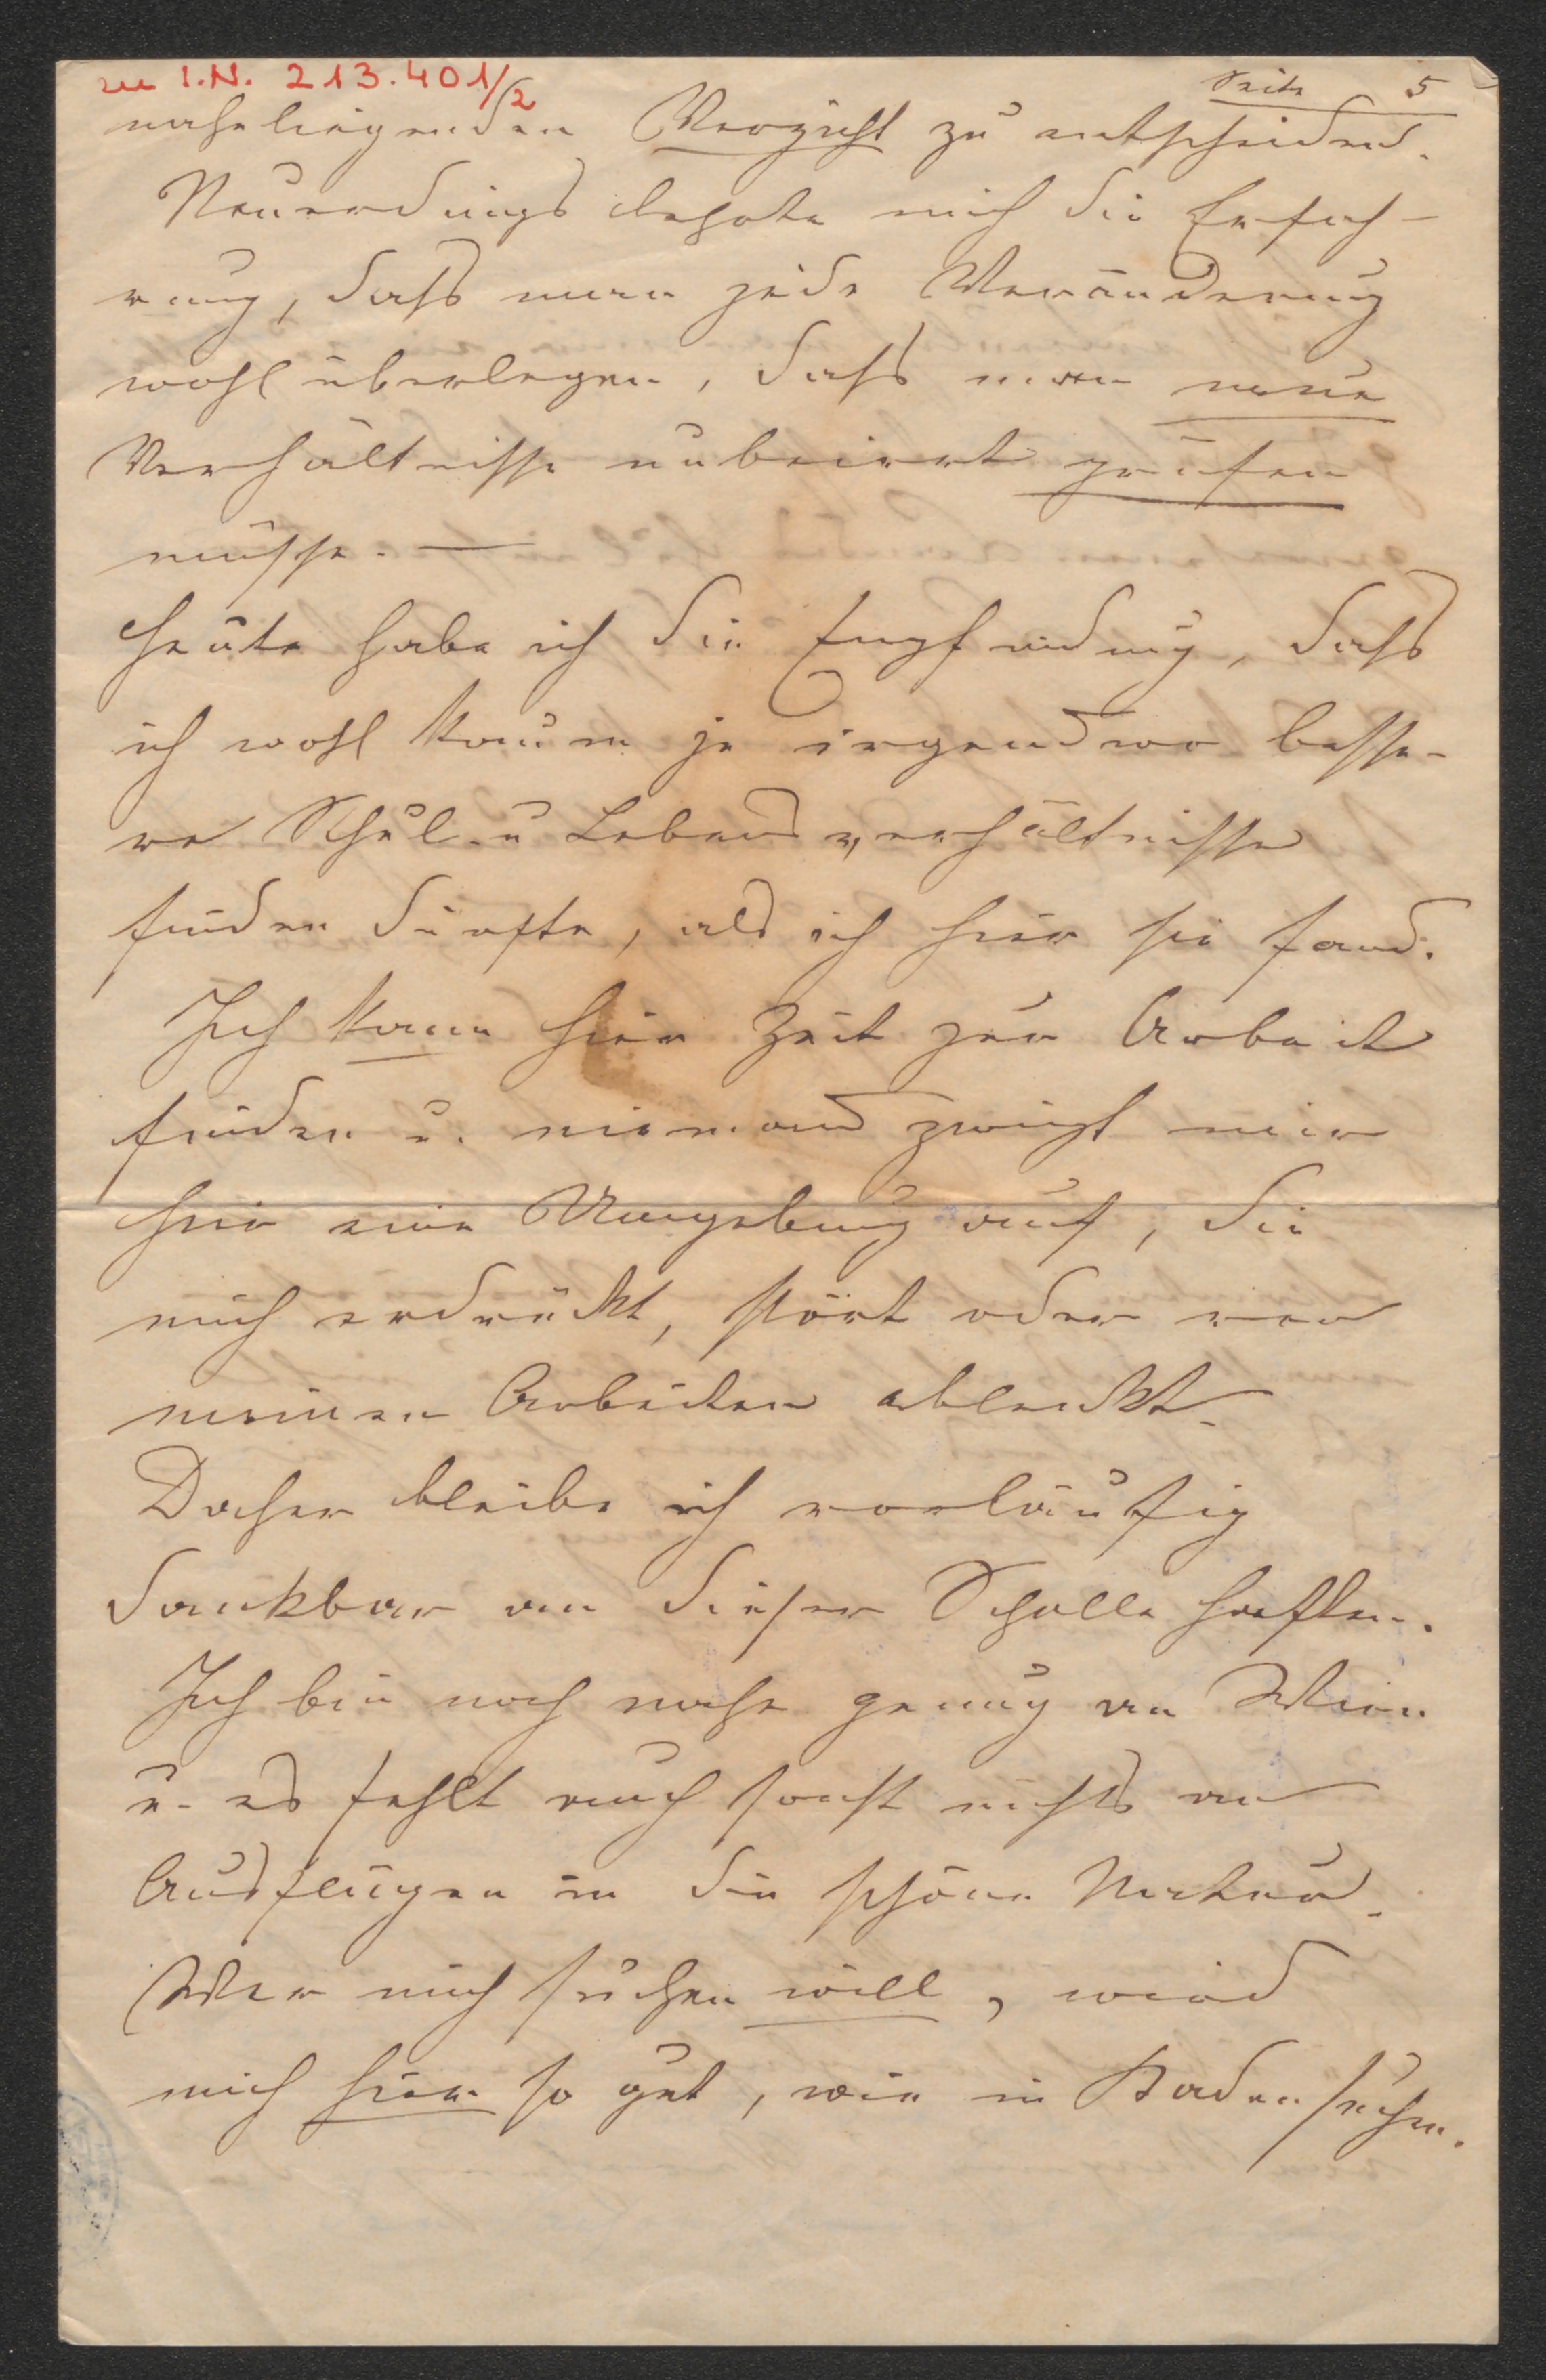 zu I.N. 213.401/2
Seite 5
naheliegenden Verzicht zu entscheiden.
Neuerdings lehrte mich die Erfah-
rung, dass man jede Veränderung
wohl überlegen, dass man neue
Verhältnisse unbeirrt prüfen
müsse. —
Heute habe ich die Empfindung, dass
ich wohl kaum je irgendwo besse-
re Schul- u Lebensverhältnisse
finden dürfte, als ich hier sie fand.
Ich kann hier Zeit zur Arbeit
finden u. niemand zwingt mir
hier eine Umgebung auf, die
mich erdrückt, stört oder von
meinen Arbeiten ablenkt.
Daher bleibe ich vorläufig
dankbar an dieser Scholle haften.
Ich bin noch nahe genug an Wien
u. es fehlt auch sonst nichts an
Ausflügen in die schöne Natur.
Wer mich suchen will, wird
mich hier so gut, wie in Baden suchen.